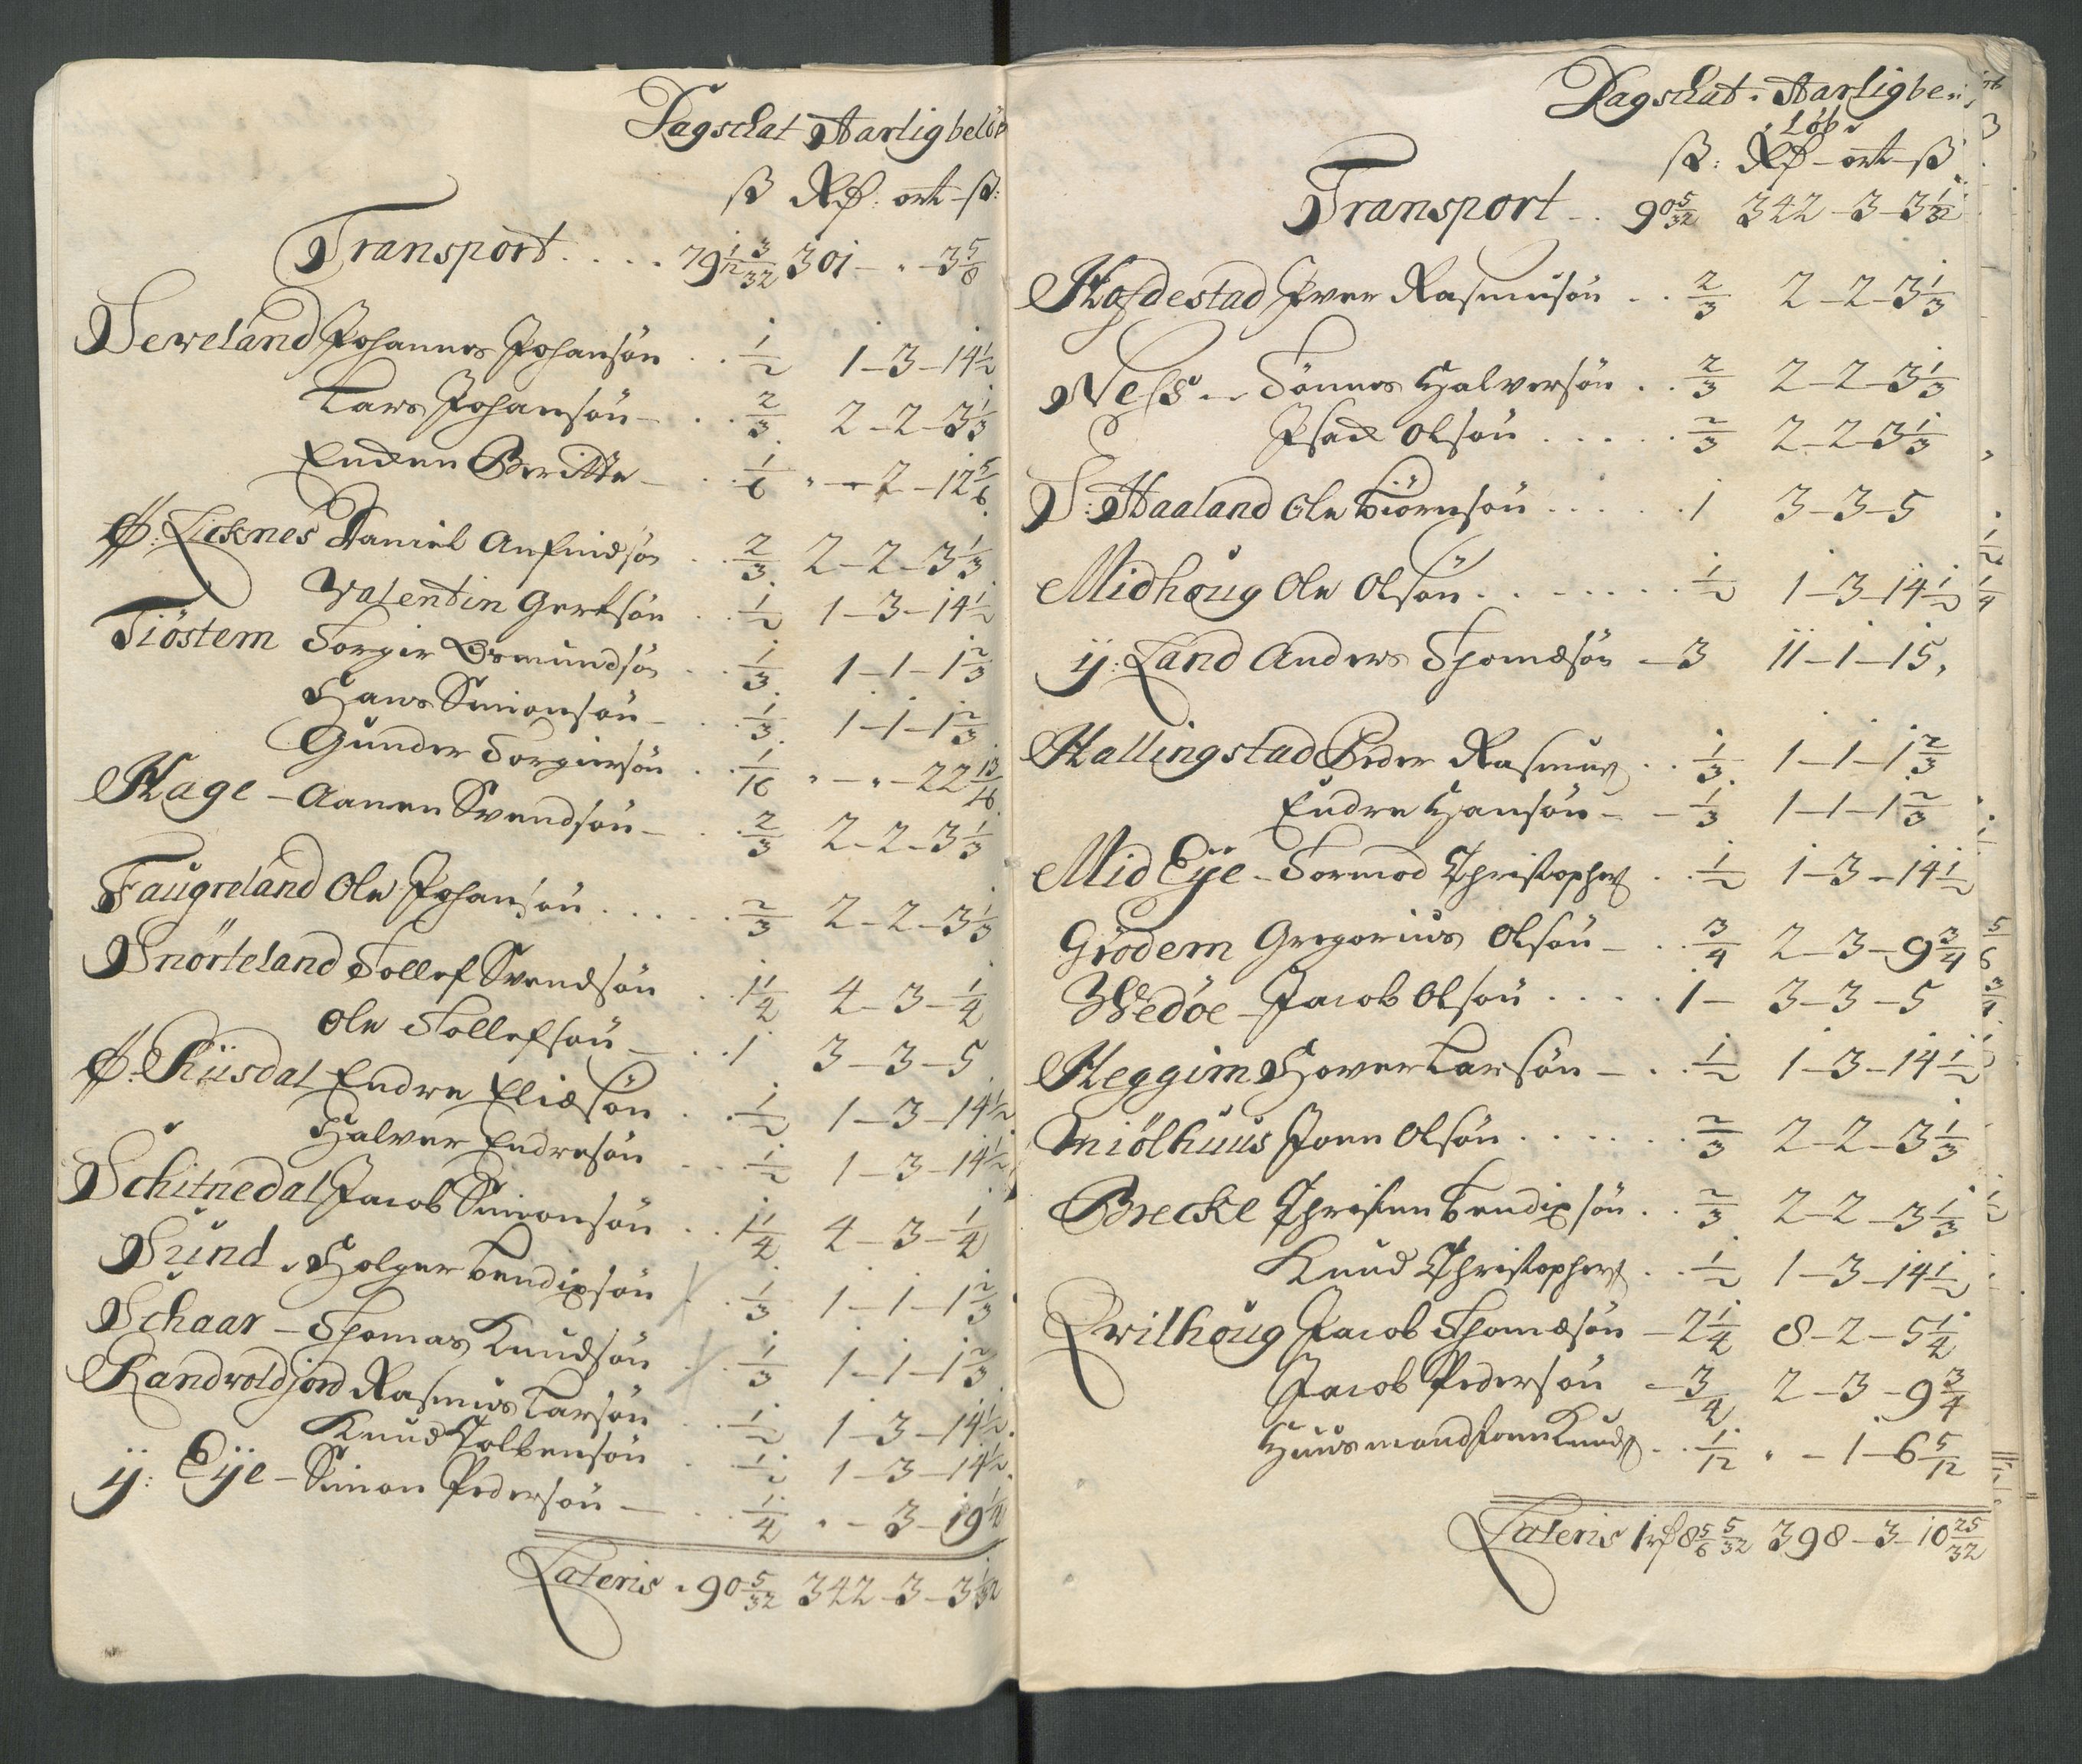 Dagschat Aarlig belöb
ß Rd: ort - ß:
Transport . . . . 79 1/12 3/32 301 - " - 3 5/8
Seweland Johannes Johansön . . 1/2 1 - 3 - 14 1/2
Lars Johansön - . . 2/3 2 - 2 - 3 1/3
Enchen Beritte - . . 1/6 " - 2 - 12 5/6
Licknes Daniel Anfindsön . . 2/3 2 - 2 - 3 1/3
Valentin Gertsön . . 1/2 1 - 3 - 14 1/2
Tiöstem Torgir Osmundsön . . 1/3 1 - 1 - 1 2/3
Hans Simonsön - . . 1/3 1 - 1 - 1 2/3
Gunder Torgiersön . . 1/16 " - " - 22 13/16
Hage - Aanen Svendsön - . . 2/3 2 - 2 - 3 1/3
Faugreland Ole Johansön . . . . . 2/3 2 - 2 - 3 1/3
Snörteland Tollef Svendsön . . 1 1/4 4 - 3 - 1/4
Ole Tollefsön - . . 1 3 - 3 - 5
Riisdal Endre Eliæsön . . 1/2 1 - 3 - 14 1/2
Halver Endresön . . 1/2 1 - 3 - 14 1/2
Schitnedal Jacob Simonsön . . 1 1/4 4 - 3 - 1/4
Sund - Holger Bendixsön . . 1/3 1 - 1 - 1 2/3
Schaar - Thomas Knudsön . . 1/3 1 - 1 - 1 2/3
Randvoldjord Rasmus Larsön . . 1/2 1 - 3 - 14 1/2
Knud Torbensön . . 1/2 1 - 3 - 14 1/2
ÿ: Eÿe - Simon Pedersön - . . 1/4 " - 3 - 19 1/4
Lateris . 90 5/32 342 - 3 - 3 1/32
Dagschat . Aarlig be
Löb
ß: Rd - ort - ß
Transport - . 90 5/32 342 - 3 - 3 1/32
Hofdestad Iver Rasmusön . . 2/3 2 - 2 - 3 1/3
Ness - Tönnes Halversön . . 2/3 2 - 2 - 3 1/3
Isach Olsön . . . . . 2/3 2 - 2 - 3 1/3
S: Haaland Ole Biörnsön . . . . . 1 3 - 3 - 5
Midhoug Ole Olsön . . . . . . . 1/2 1 - 3 - 14 1/2
ÿ: Land Anders Thomæsön - 3 11 - 1 - 15
Hallingstad Peder Rasmus . . 1/3 1 - 1 - 1 2/3
Endre Hansön - - 1/3 1 - 1 - 1 2/3
Mid Eÿe - Tormod Christophers . . 1/2 1 - 3 - 14 1/2
Grödem Gregorius Olsön - . . 3/4 2 - 3 - 9 3/4
Wedöe - Jacob Olsön . . . . 1 - 3 - 3 - 5
Heggim Hover Larsön - . . 1/2 1 - 3 - 14 1/2
Miölhuus Joen Olsön . . . . . . 2/3 2 - 2 - 3 1/3
Brecke Christen Bendixsön . . 2/3 2 - 2 - 3 1/3
Knud Christophers . . 1/2 1 - 3 - 14 1/2
Qvilhoug Jacob Thomæsön - 2 1/4 8 - 2 - 5 1/4
Jacob Pedersön - 3/4 2 - 3 - 9 3/4
Huusmand Joen Knuds . . 1/12 " - 1 - 6 5/12
Lateris 1 rd 8 5/6 5/32 398 - 3 - 10 25/32